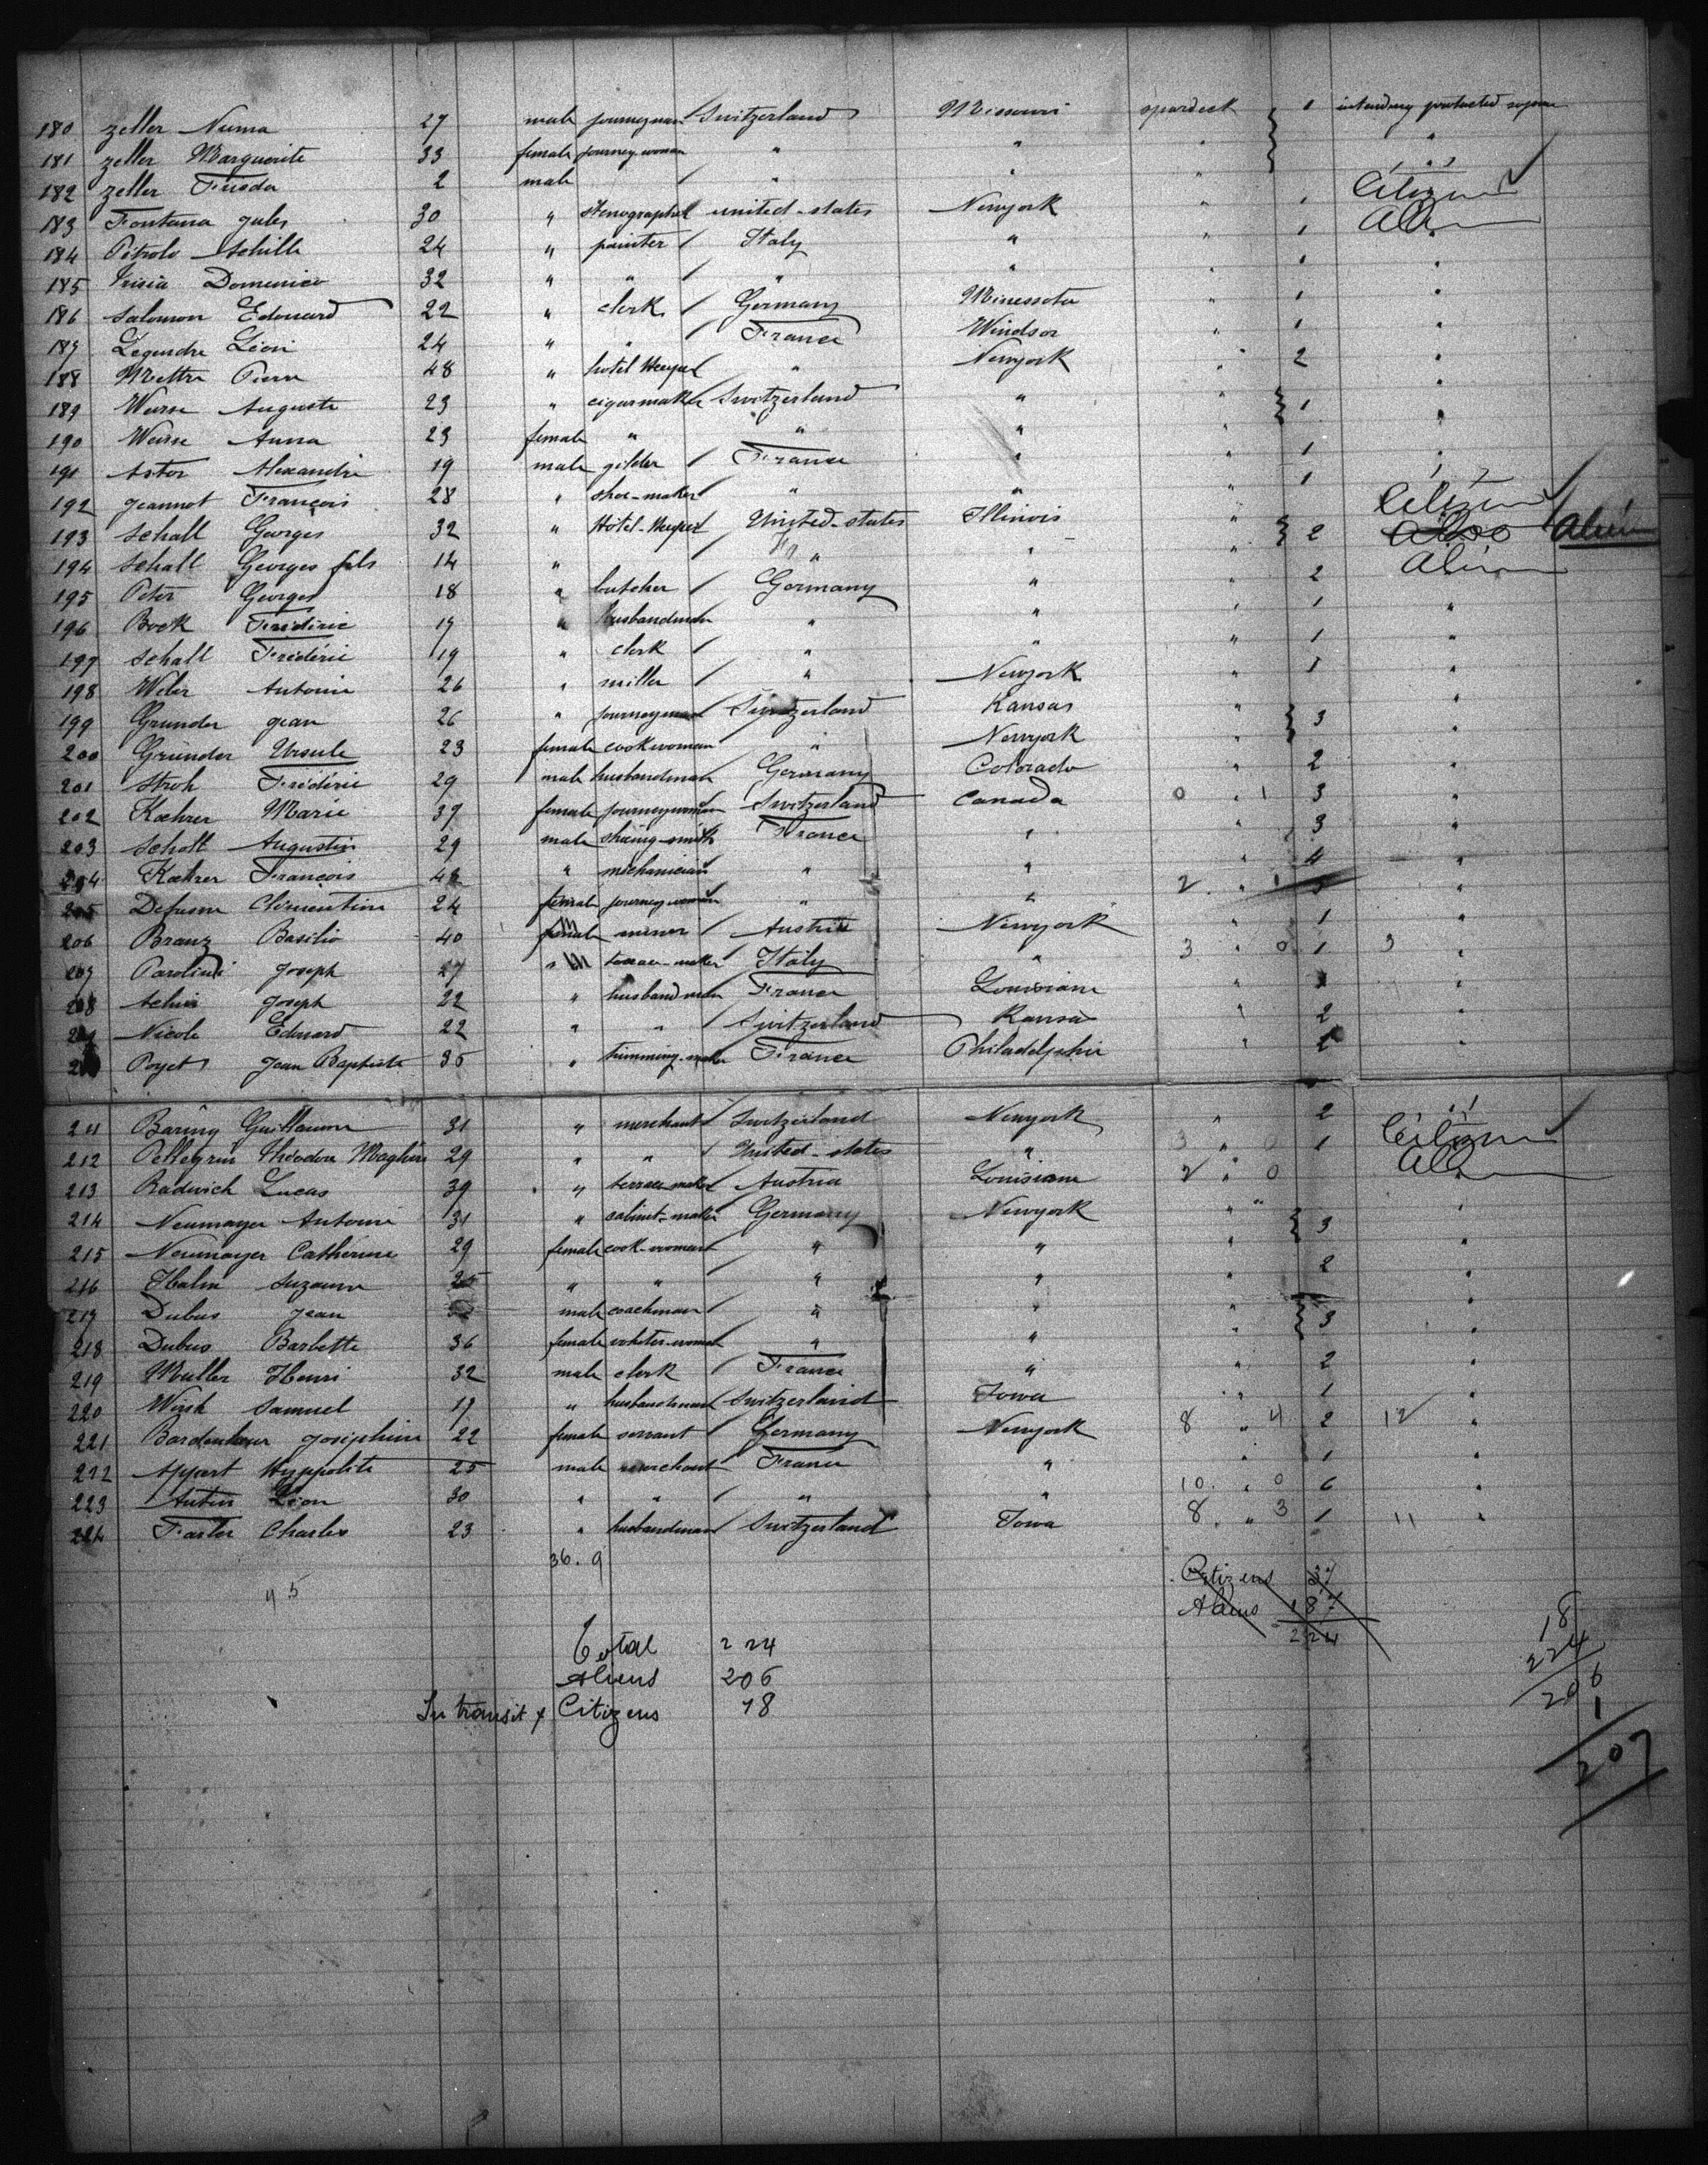 180 zeller Numa 27 male journeyman Switzerland Missouri spardeck 1 intending protracted sojourn
181 zeller Marguerite 33 female journey-woman " " " "
182 zeller Frieda 2 male / " " " "
183 Fontana Jules 30 " stenographer united-states Newyork " 1 Citizen
184 Pétrolo Achille 24 " painter / Italy " " 1 Alien
185 Domenico 32 " " / " " " 1 "
186 Salomon Edouard 22 " clerk / Germany Minessota " 1 "
187 Legendre Léon 24 " " / France Windsor " 1 "
188 Mettre Pierre 48 " hotel Keeper " Newyork " 2 "
189 Auguste 23 " cigarmaker Switzerland " " 1 "
190 Anna 23 female " " " " "
191 Astor Alexandre 19 male gilder / France " " 1 "
192 Jeannot François 28 " shoe-maker " " " 1
193 Schall Georges 32 " Hôtel-Keeper United-states Illinois " 2 Citizen Alien
194 Schall Georges fils 14 " / " " "
195 Peter Georges 18 " butcher / Germany " " 2 Alien
196 Bock Frédéric 17 " husbandman " " " 1 "
197 Schall Frédéric 19 " clerk / " " " 1 "
198 Weber Antoine 26 " miller / " Newyork " 1 "
199 Grunder Jean 26 " journeyman Switzerland Kansas " 3 "
200 Gründer Ursule 23 female cookwoman " Newyork " "
201 Stroh Frédéric 29 male husbandman Germany Colorado " 2 "
202 Kœhrer Marie 37 female journeywoman Switzerland Canada 0 " 1 3 "
203 Schott Augustin 29 male shoeing-smith France " " 3 "
204 Kœhrer François 48 " mechanician " " " 4 "
205 Clémentine 24 female journey-woman " " 2 " 1 "
206 Branz Basilio 40 male miner / Austria Newyork " 1 "
207 Parolini Joseph 27 " m terrace-maker Italy " 3 " 0 1 3 "
208 Joseph 22 " husbandman France Louisiana " "
209 Nicole Eduard 22 " " / Switzerland Kansas " 2 "
210 Poyet Jean Baptiste 35 " trimming-maker France Philadelphie " "
211 Baring Guillaume 31 " merchant Switzerland Newyork " 2 "
212 Pellegrin Théodore 29 " " / United-states " 3 " 0 1 Citizen
213 Radwich Lucas 39 " terrace-maker Austria Louisiana 2 " 0 Alien
214 Neumayer Antoine 31 " cabinet-maker Germany Newyork " 3 "
215 Neumayer Cathérine 29 female cook-woman " " " "
216 Halm Suzanne 25 " " / " " " 2 "
217 Dubus Jean male coachman / " " " 3 "
218 Dubus Barbette 36 female " " " "
219 Muller Henri 32 male clerk / France " " 2 "
220 Samuel 17 " husbandman Switzerland Iowa " 1 "
221 Joséphine 22 female servant / Germany Newyork 8 " 4 2 12 "
222 Appert Hyppolite 25 male merchant France " " 1 "
223 Léon 30 " " / " " 10. " 0 6 "
224 Charles 23 " husbandman Switzerland Iowa 8 " 3 1 11 "
36. 9
45
Citizens 37
Aliens 187
224
Total 224
Aliens 206
In transit + Citizens 18
18
224
206
1
207